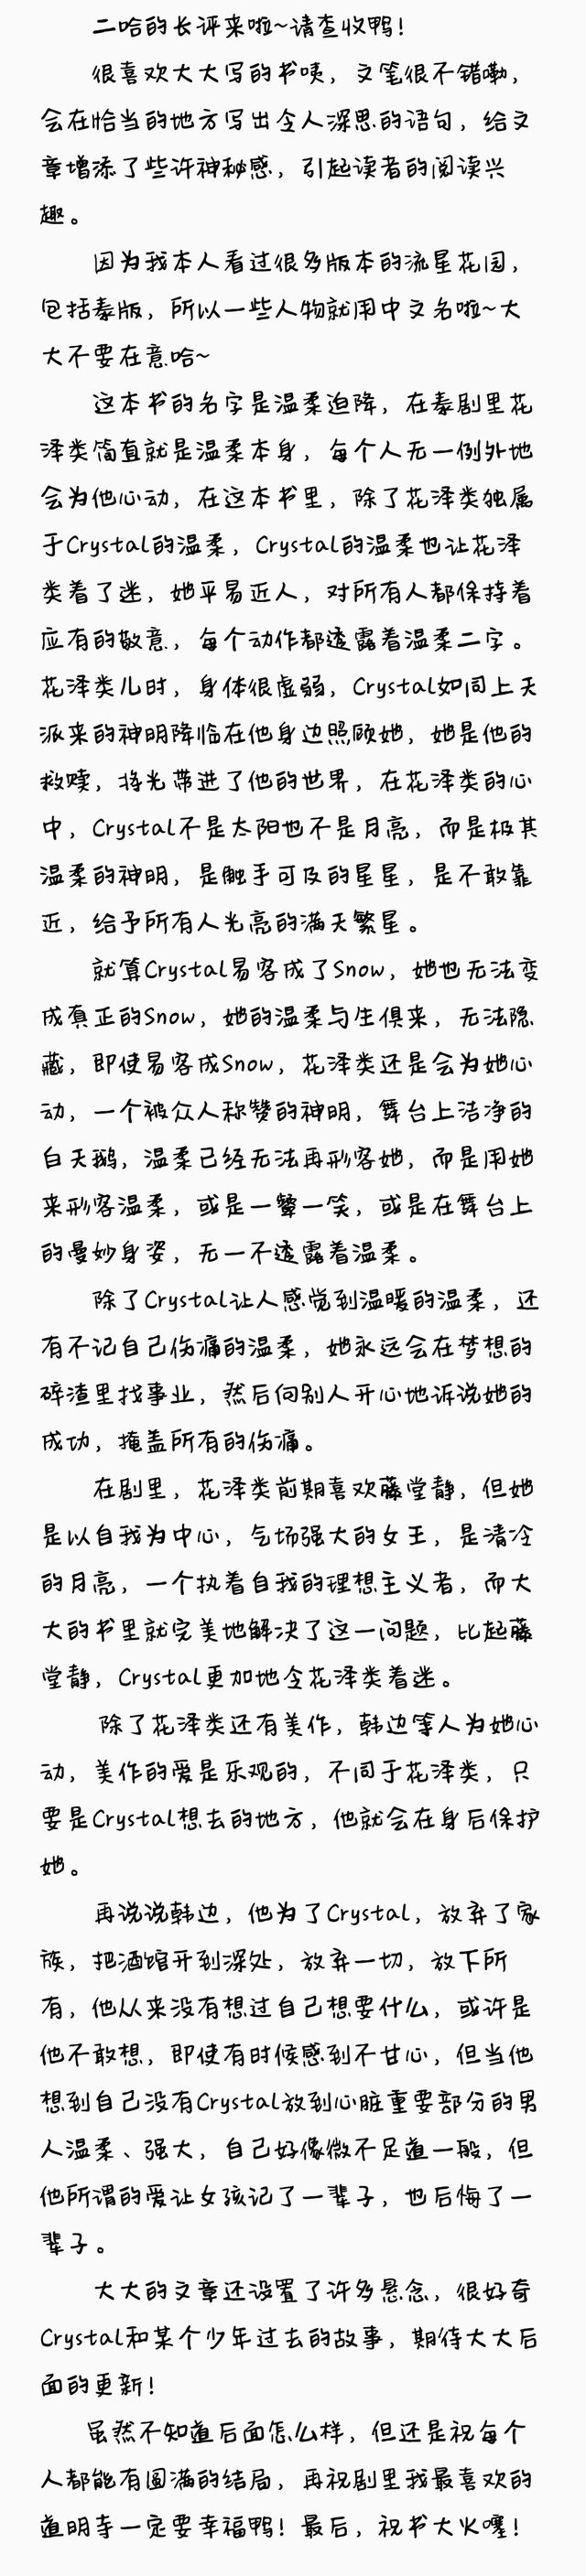 二哈的长评来啦~请查收鸭!
很喜欢大大写的书咦，文笔很不错嘞，
会在恰当的地方写出令人深思的语句，给文
章增添了些许神秘感，引起读者的阅读兴
趣。
因为我本人看过很多版本的流星花园，
包括泰版，所以一些人物就用中文名啦~大
大不要在意哈~
这本书的名字是温柔迫降，在泰剧里花
泽类简直就是温柔本身，每个人无一例外地
会为他心动，在这本书里，除了花泽类独属
于Crystal的温柔，Crystal的温柔也让花泽
类着了迷，她平易近人，对所有人都保持着
应有的敬意，每个动作都透露着温柔二字。
花泽类儿时，身体很虚弱，Crystal如同上天
派来的神明降临在他身边照顾她，她是他的
救赎，将光带进了他的世界，在花泽类的心
中，Crystal不是太阳也不是月亮，而是极其
温柔的神明，是触手可及的星星，是不敢靠
近，给予所有人光亮的满天繁星。
就算Crystal易容成了Snow，她也无法变
成真正的Snow，她的温柔与生俱来，无法隐
藏，即使易容成Snow，花泽类还是会为她心
动，一个被众人称赞的神明，舞台上洁净的
白天鹅，温柔已经无法再形容她，而是用她
来形容温柔，或是一颦一笑，或是在舞台上
的曼妙身姿，无一不透露着温柔。
除了Crystal让人感觉到温暖的温柔，还
有不记自己伤痛的温柔，她永远会在梦想的
碎渣里找事业，然后向别人开心地诉说她的
成功，掩盖所有的伤痛。
在剧里，花泽类前期喜欢藤堂静，但她
是以自我为中心，气场强大的女王，是清冷
的月亮，一个执着自我的理想主义者，而大
大的书里就完美地解决了这一问题，比起藤
堂静，Crystal更加地令花泽类着迷。
除了花泽类还有美作，韩边等人为她心
动，美作的爱是乐观的，不同于花泽类，只
要是Crystal想去的地方，他就会在身后保护
她。
再说说韩边，他为了Crystal，放弃了家
族，把酒馆开到深处，放弃一切，放下所
有，他从来没有想过自己想要什么，或许是
他不敢想，即使有时候感到不甘心，但当他
想到自己没有Crystal放到心脏重要部分的男
人温柔、强大，自己好像微不足道一般，但
他所谓的爱让女孩记了一辈子，也后悔了一
辈子。
大大的文章还设置了许多悬念，很好奇
Crystal和某个少年过去的故事，期待大大后
面的更新!
虽然不知道后面怎么样，但还是祝每个
人都能有圆满的结局，再祝剧里我最喜欢的
道明寺一定要幸福鸭!最后，祝书大火噻!